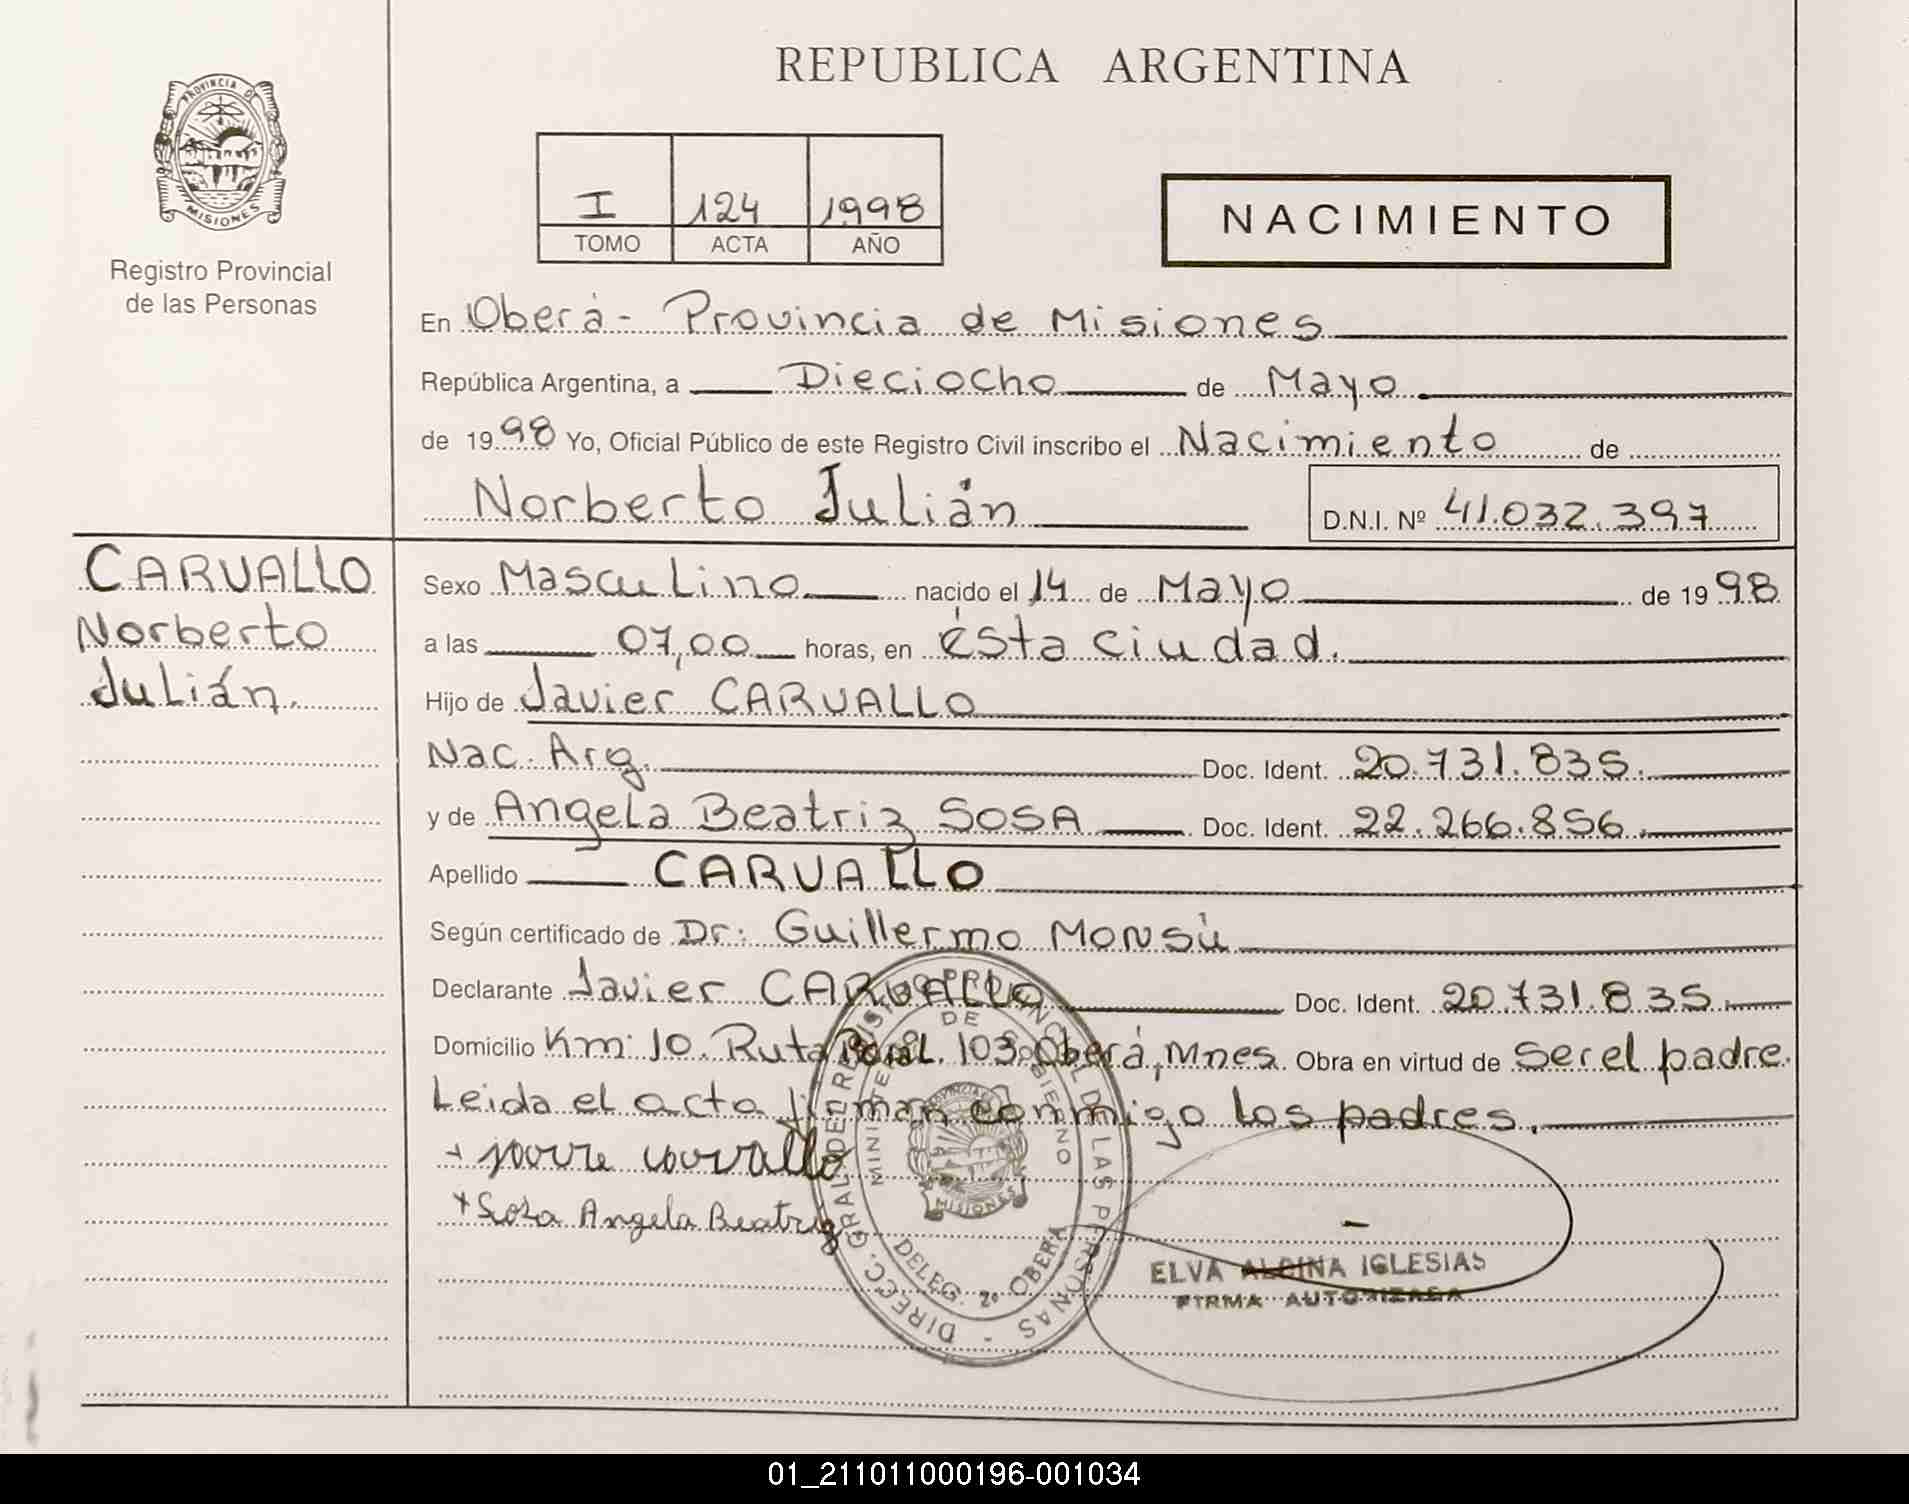 REPUBLICA ARGENTINA
PROVINCIA DE
MISIONES
Registro Provincial
de las Personas
I 124 1998
TOMO ACTA AÑO
NACIMIENTO
En Oberá - Provincia de Misiones
República Argentina, a Dieciocho de Mayo
de 1998 Yo, Oficial Público de este Registro Civil inscribo el Nacimiento de
Norberto Julián D.N.I. Nº 41.032.397
CARVALLO
Norberto
Julián.
Sexo Masculino nacido el 14 de Mayo de 1998
a las 07,00 horas, en ésta ciudad.
Hijo de Javier CARVALLO
Nac. Arg. Doc. Ident. 20.731.835.
y de Angela Beatriz SOSA Doc. Ident. 22.266.856.
Apellido CARVALLO
Según certificado de Dr: Guillermo Monsú
Declarante Javier CARVALLO Doc. Ident. 20.731.835.
Domicilio Km: 10. Ruta Pcial. 103. Oberá, Mnes. Obra en virtud de Ser el padre.
Leida el acta firman conmigo los padres.
+ carvallo
+ Sosa Angela Beatriz
DIRECC. GRAL. DEL REGISTRO PROVINCIAL DE LAS PERSONAS -
MINISTERIO DE GOBIERNO
MISIONES
DELEG. 2º OBERÁ
ELVA ALBINA IGLESIAS
FIRMA AUTORIZADA
01_211011000196-001034